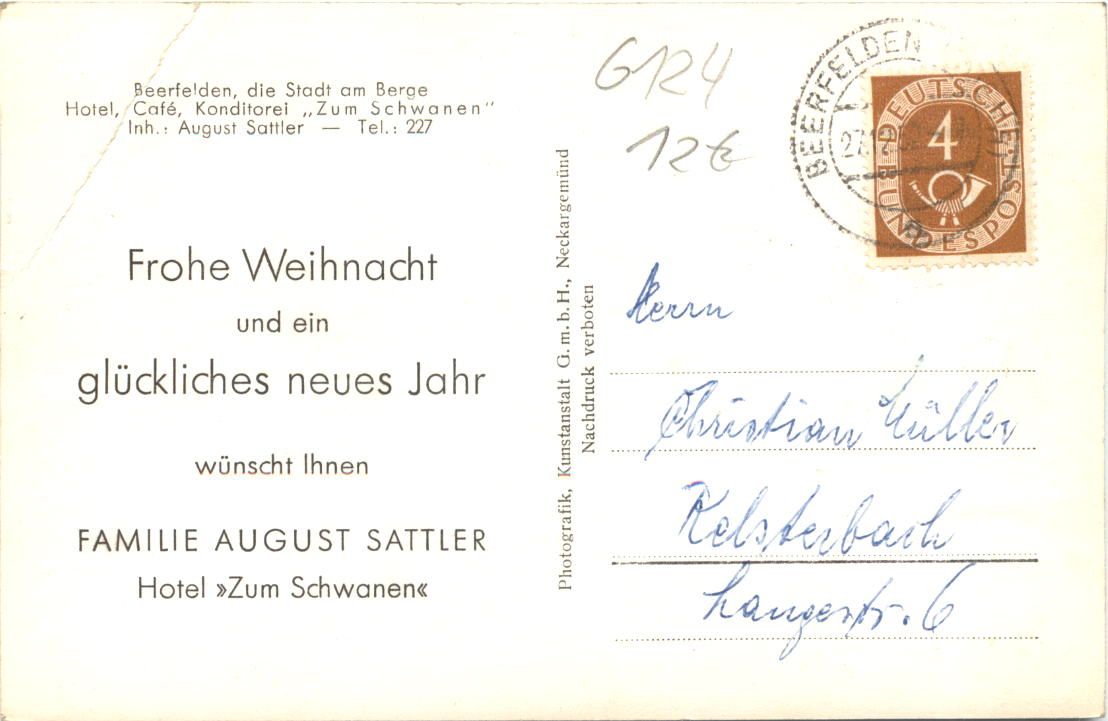 Beerfelden, die Stadt am Berge
Hotel, Café, Konditorei „Zum Schwanen"
Inh.: August Sattler — Tel.: 227
Frohe Weihnacht
und ein
glückliches neues Jahr
wünscht Ihnen
FAMILIE AUGUST SATTLER
Hotel »Zum Schwanen«
Photografik, Kunstanstalt G.m.b.H., Neckargemünd
Nachdruck verboten
G124
12€
BEERFELDEN
DEUTSCHE BUNDESPOST
4
Herrn
Christian Müller
Kelsterbach
Langestr. 6